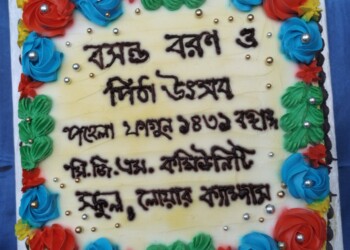 বসন্ত বরণ ও
পিঠা উৎসব
পহেলা ফাগুন ১৪৩১ বঙ্গাব্দ
সি.জি.এস. কমিউনিটি
স্কুল, লোয়ার ক্যাম্পাস